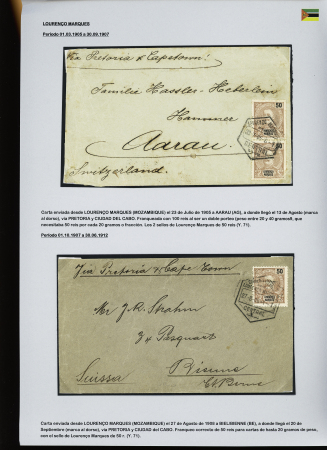 LOURENÇO MARQUES
Período 01.03.1905 a 30.09.1907
Via Pretoria & Capetown!
50
Familie Hassler-Heberlein
Hammer
50
Aarau.
Switzerland.
Carta enviada desde LOURENÇO MARQUES (MOZAMBIQUE) el 23 de Julio de 1905 a AARAU (AG), a donde llegó el 13 de Agosto (marca
al dorso), via PRETORIA y CIUDAD del CABO. Franqueada con 100 reis al ser un doble porteo (peso entre 20 y 40 gramos), que
necesitaba 50 reis por cada 20 gramos o fracción. Los 2 sellos de Lourenço Marques de 50 reis (Y. 71).
Período 01.10.1907 a 30.06.1912
Via Pretoria & Cape Town
50
Mr J. R. Strahm
Pasquart
Suissa
Bienne
Ct. Berne
Carta enviada desde LOURENÇO MARQUES (MOZAMBIQUE) el 27 de Agosto de 1908 a BIEL/BIENNE (BE), a donde llegó el 20 de
Septiembre (marca al dorso), via PRETORIA y CIUDAD del CABO. Franqueo correcto de 50 reis para cartas de hasta 20 gramos de peso,
con el sello de Lourenço Marques de 50 r. (Y. 71).